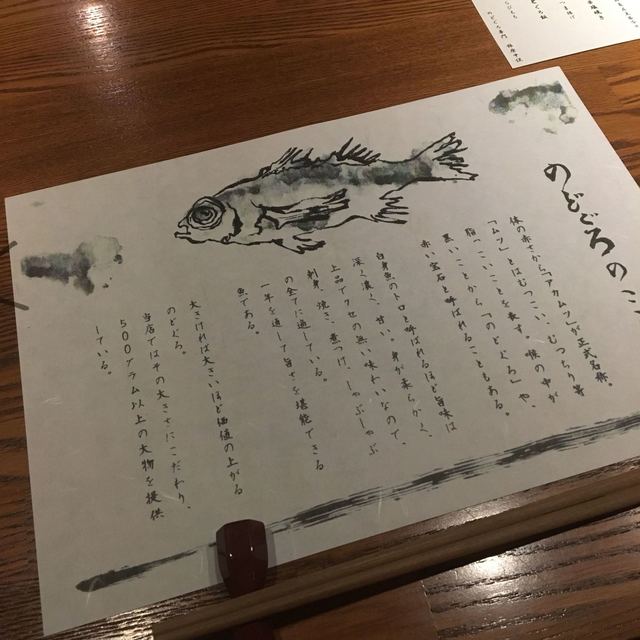 のどぐろの
体の赤さから「アカムツ」が正式名称。
「ムツ」とはむつこい、むつっり等
脂っこいことを表す。喉の中が
黒いことから「のどぐろ」や、
赤い宝石と呼ばれることもある。
白身魚のトロと呼ばれるほど旨味は
深く濃く、甘い。身が柔らかく、
上品でクセの無い味わいなので、
刺身、焼き、煮つけ、しゃぶしゃぶ
の全てに適している。
一年を通して旨さを堪能できる
魚である。
大きければ大きいほど価値の上がる
のどぐろ。
当店ではその大きさにこだわり、
500グラム以上の大物を提供
している。